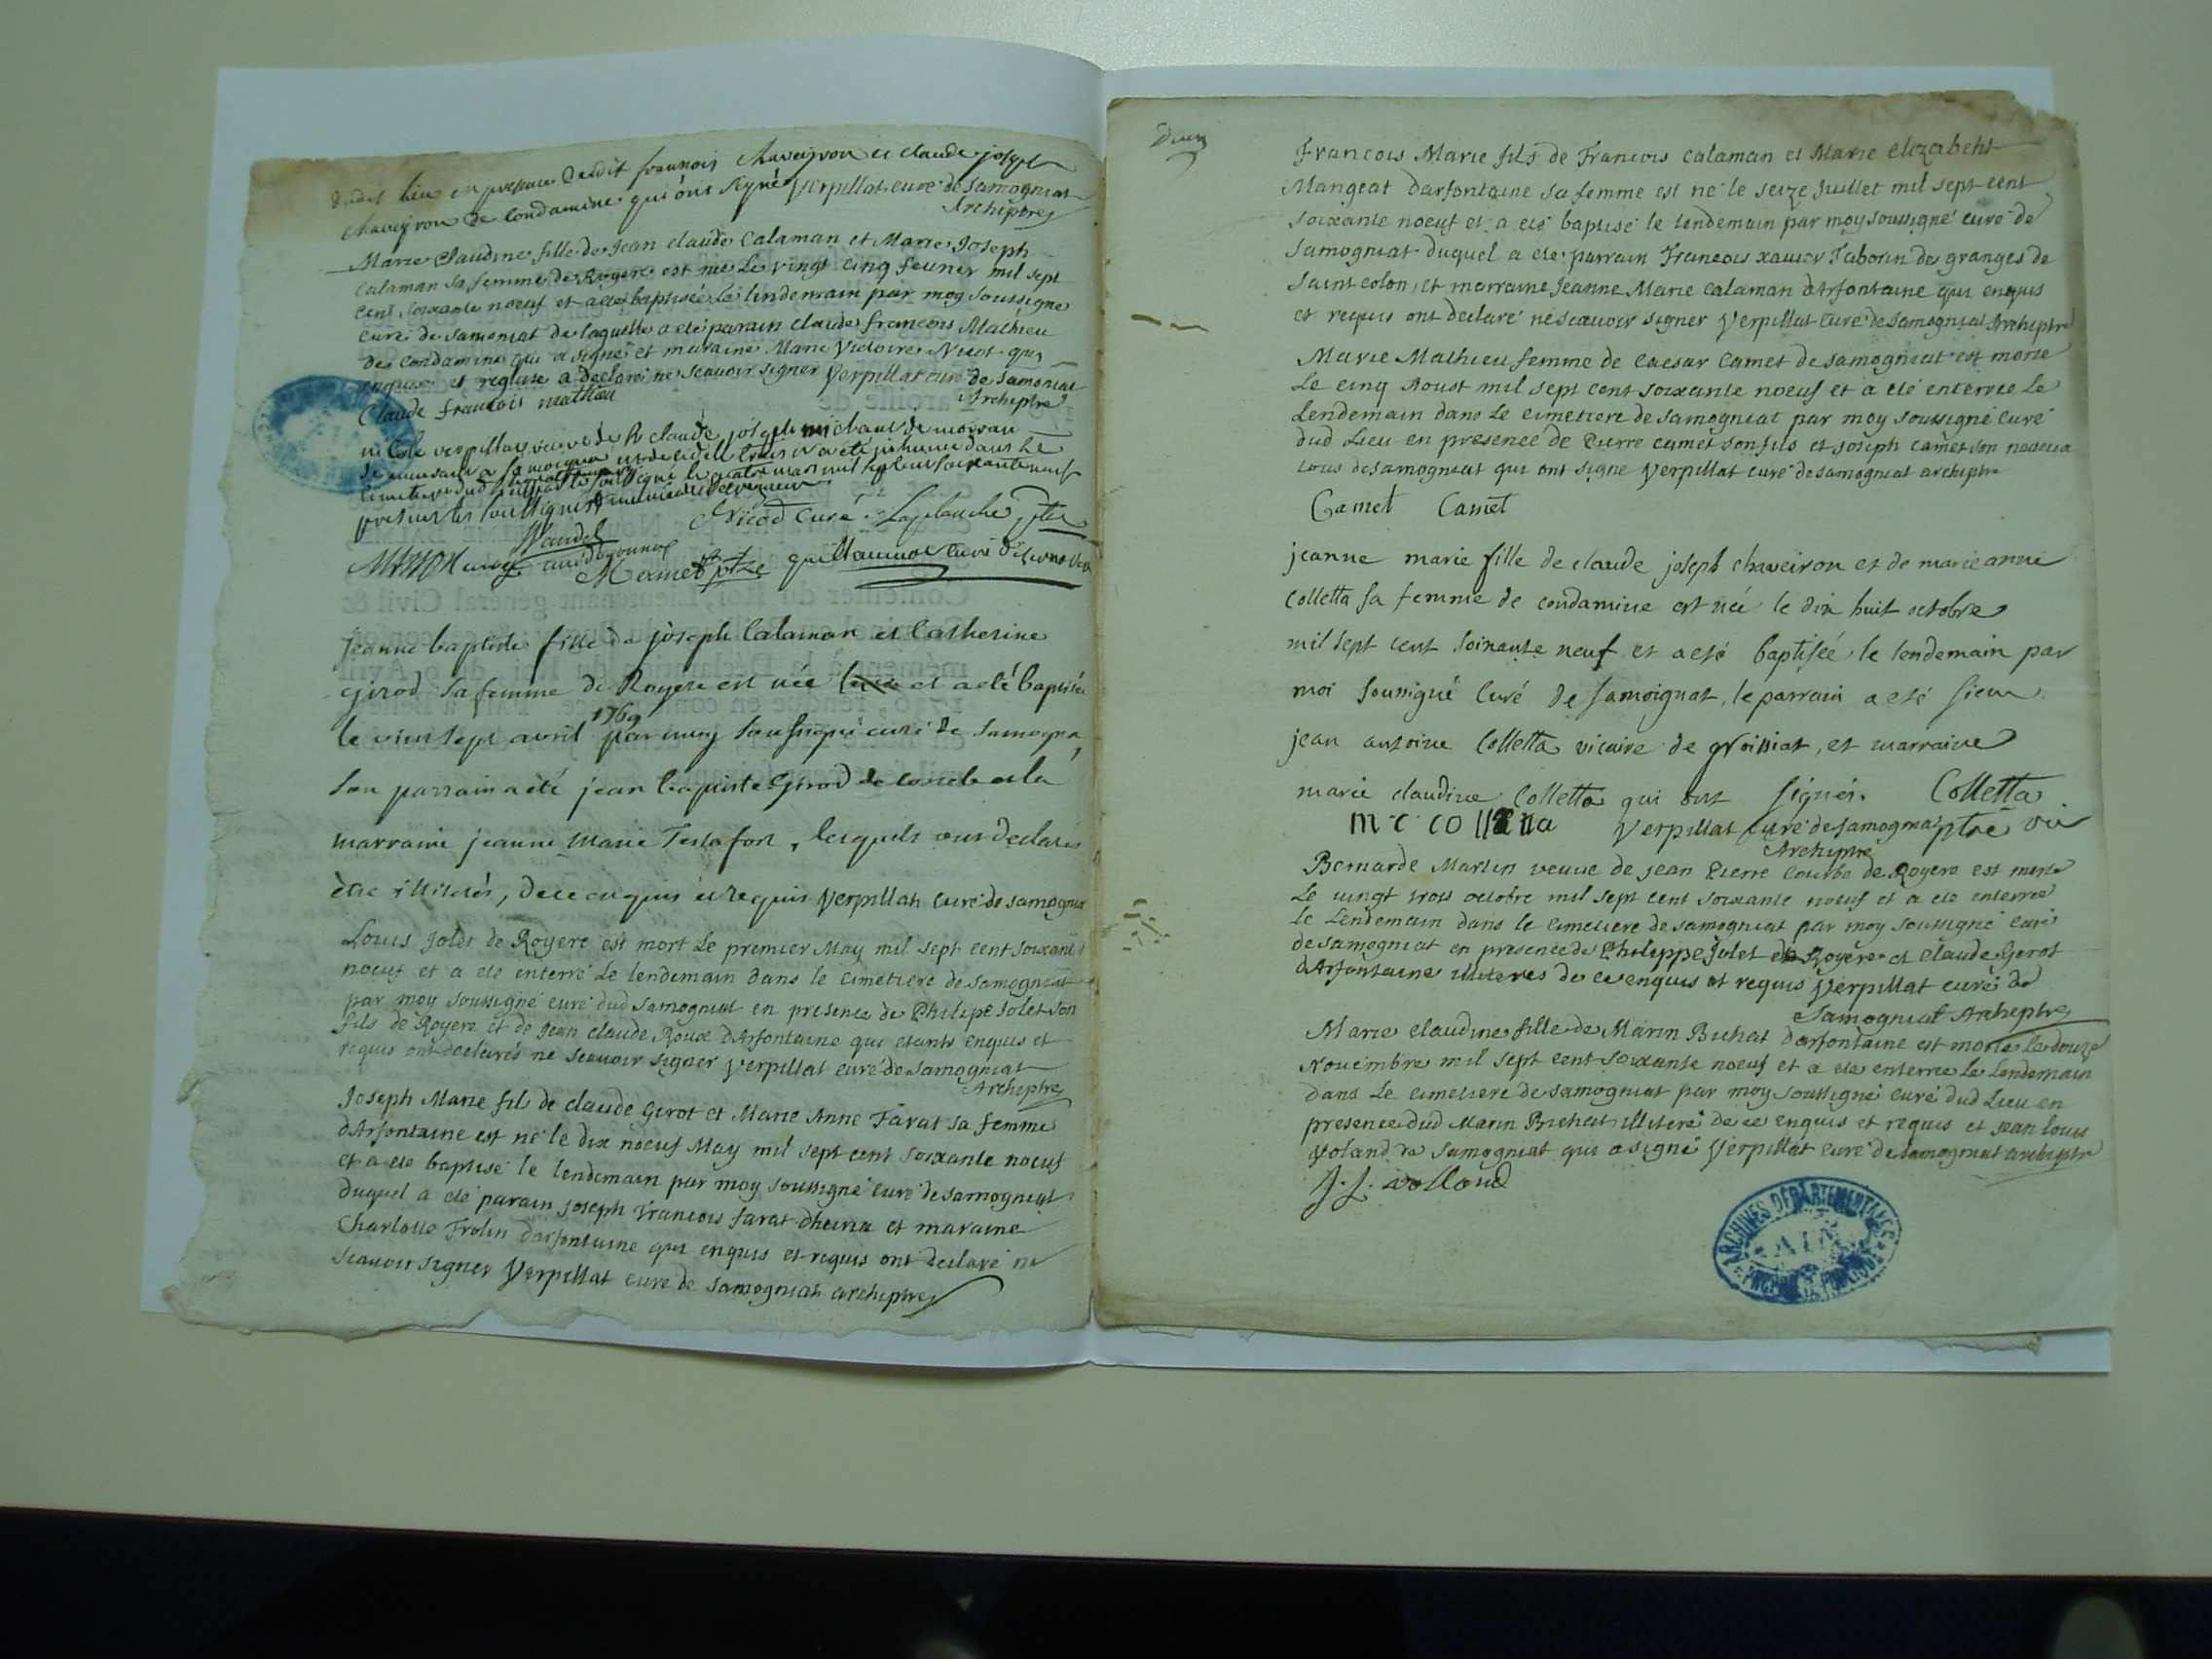 dudit lieu en presence dudit francois chaveyron et claude joseph
chaveyron de Condamine qui ont signé Verpillat curé de Samogniat
Archiptre
Marie Claudine fille de Jean claude Calaman et Marie Joseph
Calaman sa femme de Royere est née Le vingt cinq feurier mil sept
cent soixante noeuf et a été baptisée le lendemain par moy soussigné
curé de samoniat de laquelle a eté parain claude francois Mathieu
de Condamine qui a signé et maraine Marie Victoire Nicot qui
enquise et requise a declaré ne scauoir signer Verpillat curé de Samoniat
Archiptre
Claude francois mathieu
verpillat veuve de claude joseph michaut de
a samognia
present les soussignés
Nicod Curé
Vandel
Mermet ptre curé
jeanne baptiste fille de joseph Calaman et Catherine
girod sa femme de Royere est née et a eté baptisée
le vint sept avril 1769 par moy soussigné curé de samogna,
son parrain a été jean baptiste Girod de et la
marraine jeanne Marie Testafort, lesquels ont declarés
être illitérés, de ce enquis et requis Verpillat curé de samogniat
Louis Jolet de Royere est mort Le premier May mil sept cent soixante
noeuf et a eté enterré Le lendemain dans le cimetiere de samogniat
par moy soussigné curé dud Samogniat en presence de Philipe Jolet son
fils de Royere et de Jean claude Roux d'Arfontaine qui etants enquis et
requis ont declarés ne scauoir signer Verpillat curé de Samogniat
Archiptre
Joseph Marie fils de claude Girot et Marie Anne Favat sa femme
d'Arfontaine est né le dix noeuf May mil sept cent soixante noeuf
et a eté baptisé le lendemain par moy soussigné curé de samogniat
duquel a eté parain joseph francois favat et maraine
Charlotte Frolin d'arfontaine qui enquis et requis ont declaré ne
scauoir signer Verpillat curé de Samogniat archiptre
Francois Marie fils de Francois Calaman et Marie Elizabeht
Mangeat darfontaine sa femme est né le seize Juillet mil sept cent
soixante noeuf et a eté baptisé le lendemain par moy soussigné curé de
samogniat duquel a eté parrain Francois xauier Taborin de granges de
saint colon, et marraine Jeanne Marie Calaman d'Arfontaine qui enquis
et requis ont declaré ne scauoir signer Verpillat Curé de Samogniat Archiptre
Marie Mathieu femme de Caesar Camet de samogniat est morte
Le cinq Aoust mil sept cent soixante noeuf et a eté enterrée Le
Lendemain dans Le cimetiere de samogniat par moy soussigné curé
dud Lieu en presence de Pierre camet son fils et joseph camet son neveu
tous de samogniat qui ont signé Verpillat curé de samogniat archiptre
Camet Camet
jeanne marie fille de claude joseph chaveiron et de marie anne
Colletta sa femme de condamine est née le dix huit octobre
mil sept cent soixante neuf et a eté baptisée le lendemain par
moi soussigné Curé de samoignat, le parrain a eté sieur
jean antoine Colletta vicaire de Nivoisiat, et marraine
marie claudine Colletta qui ont signés. Colletta
m c colletta Verpillat curé de samogniat ptre vic
Archiptre
Bernarde Martin veuve de jean Pierre Courbe de Royere est morte
Le vingt trois octobre mil sept cent soixante noeuf et a eté enterrée
le Lendemain dans le cimetiere de samogniat par moy soussigné curé
de samogniat en presence de Philippe Jolet de Royere et claude Gerot
d'Arfontaine illiteres de ce enquis et requis Verpillat curé de
Samogniat Archiptre
Marie claudine fille de Marin Bichat darfontaine est morte le douze
Nouembre mil sept cent soixante noeuf et a eté enterrée Le lendemain
dans Le cimetiere de samogniat par moy soussigné curé dud Lieu en
presence dud Marin Bichat illiteré de ce enquis et requis et jean louis
Voland de Samogniat qui a signé Verpillat curé de samogniat archiptre
J. L. volland
ARCHIVES DÉPARTEMENTALES
AIN